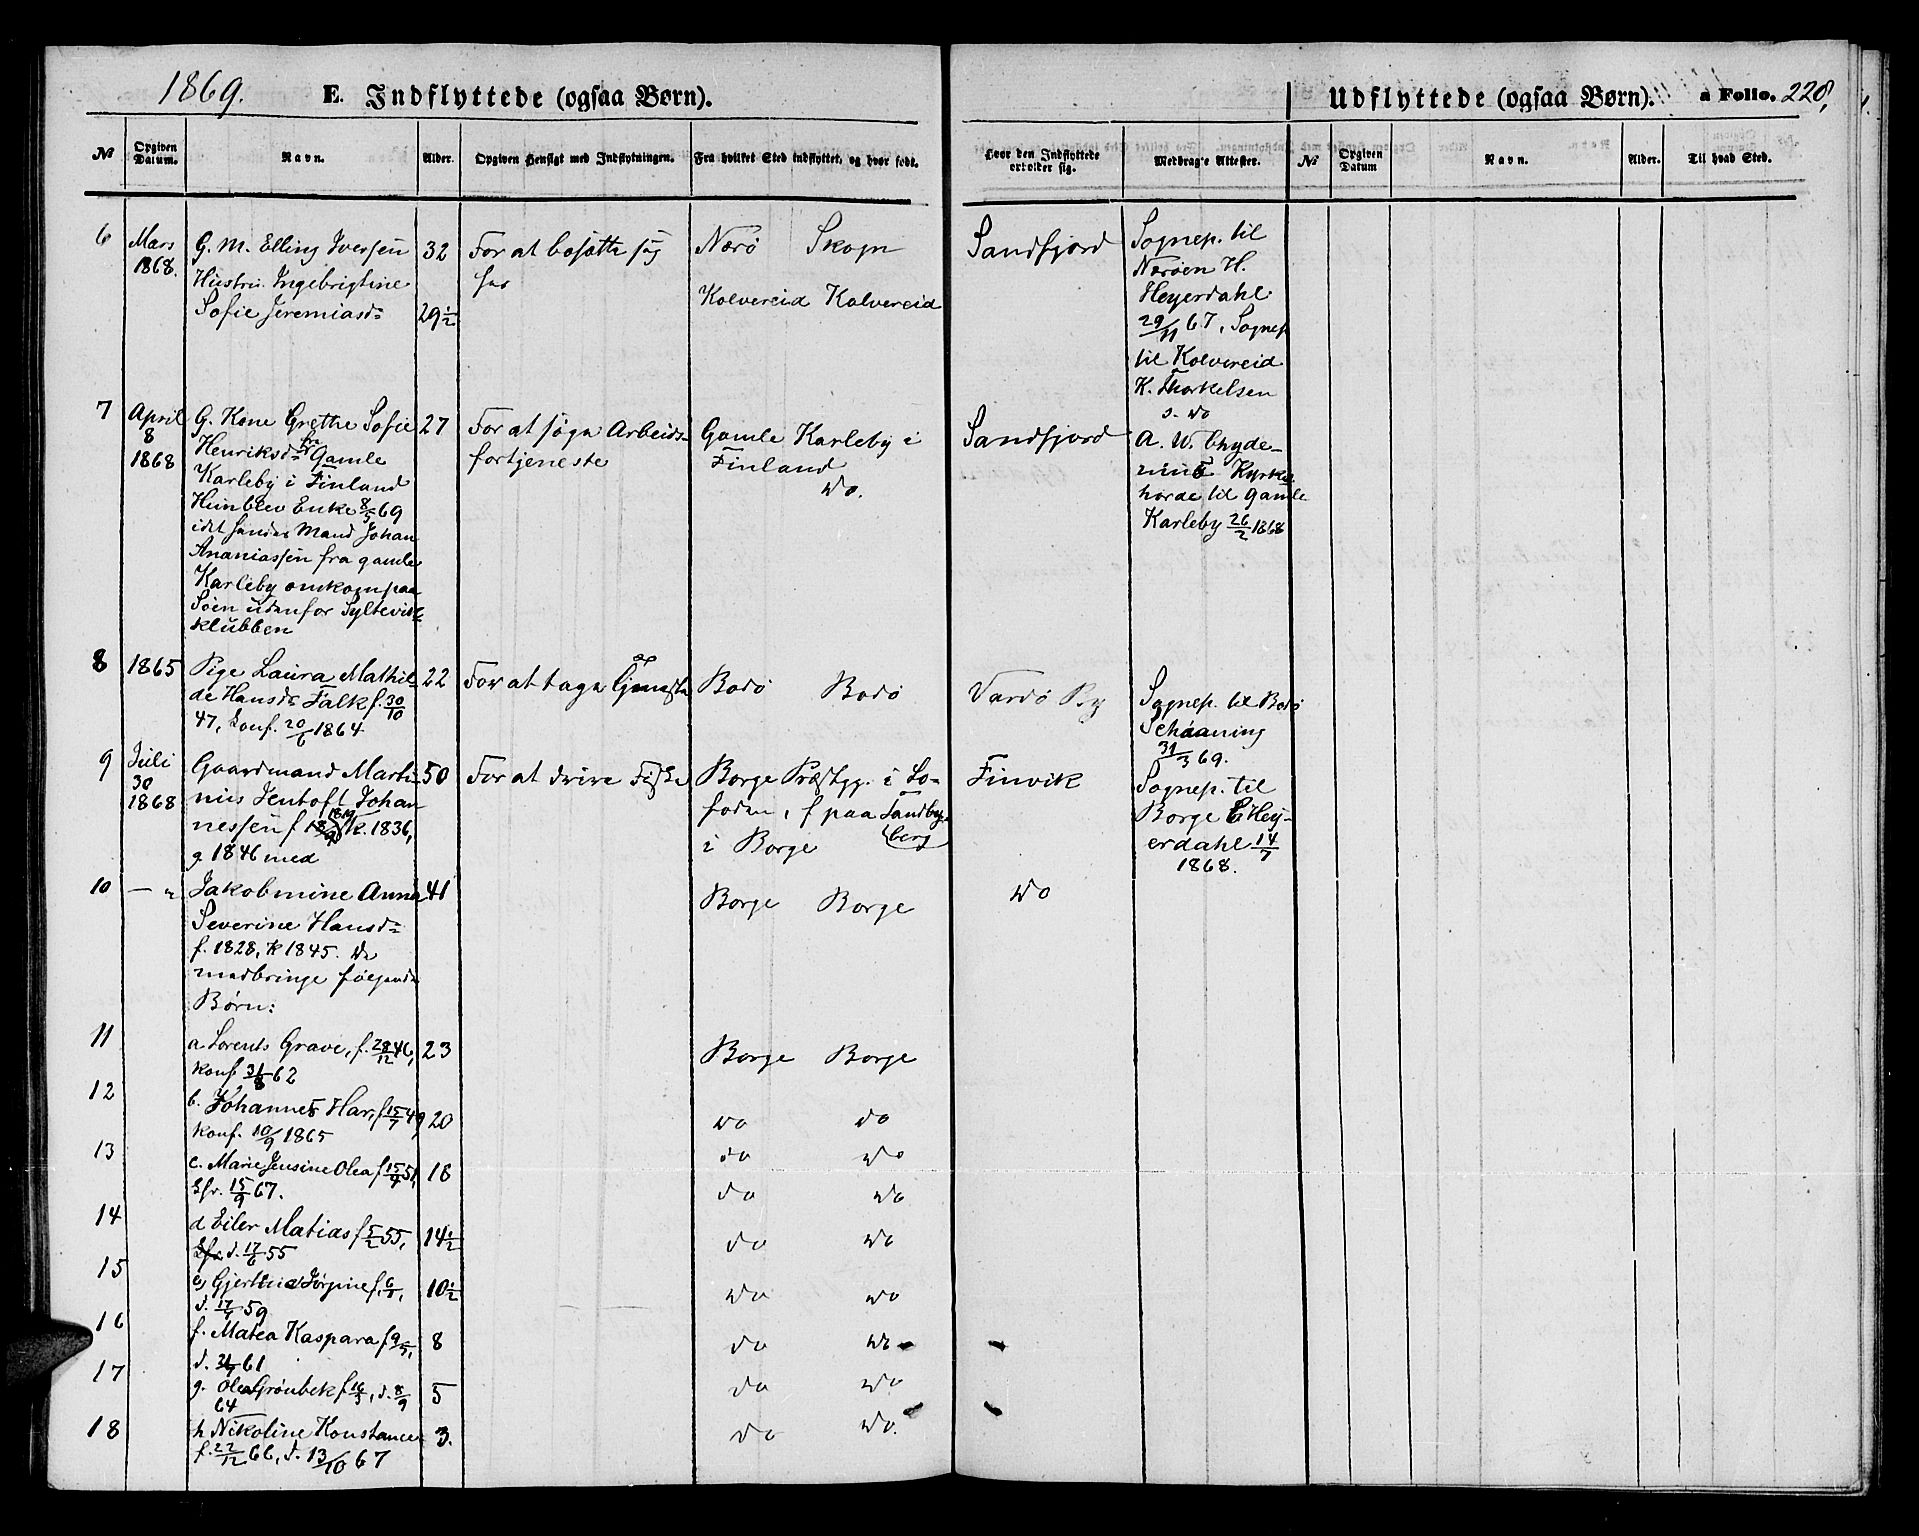 1869.
E. Indflyttede (ogsaa Børn).
Udflyttede (ogsaa Børn).
a Folio. 228,
№
Opgiven Datum.
Navn.
Alder.
Opgiven Hensigt med Indflytningen.
Fra hvilket Sted indflyttet, og hvor født.
Hvor den Indflyttede opholder sig.
Medbragte Attester.
№
Opgiven Datum
Navn.
Alder.
Til hvad Sted.
6 Mars 1868.
G. M. Elling Iversen 32
Hustru Ingebrigtine
Sofie Jeremiasd= 29½
For at bosætte sig
her
Nærö Skogn
Kolvereid Kolvereid
Sandfjord
Sognep. til
Næröen H.
Heyerdahl
29/11 67, Sognep
til Kolvereid
K. Thorkelsen
s. do
7 April 8 1868
G. Kone Grethe Sofie 27
Henriksd= fra Gamle
Karleby i Finland
Hun blev Enke 8/5 69
idet hendes Mand Johan
Ananiassen fra gamle
Karleby omkom paa
Søen udenfor Syltevik=
klubben
For at søge Arbeids=
fortjeneste
Gamle Karleby i
Finland
do.
Sandfjord
A. W. Chyde=
nius Kyrko
horde til Gamle
Karleby 26/2 1868
8 1865
Pige Laura Mathil= 22
de Hansd= Falk f. 30/10
47, Konf. 20/6 1864
For at tage Tjeneste
Bodö Bodö
Vardö By
Sognep. til Bodö
Schaaning
31/3 69.
9 Juli 30 1868
Gaardmand Marti= 50
nius Jentoft Johan=
nessen f 1819 k. 1836,
g 1846 med
For at drive Fiske
Borge Præstgj. i Lo=
foden, f paa Sandby
berg
i Borge
Finvik
Sognep. til
Borge E Hey=
erdahl 14/7
1868.
10 — "
Jakobmine Anna 41
Severine Hansd=
f. 1828, k 1845. De
medbringe følgende
Børn:
Borge Borge
do
11
a Lorents Grave, f. 28/12 46, 23
konf 31/8 62
Borge Borge
12
b. Johannes Har, f 15/7 49, 20
konf. 10/9 1865
do do
13
c. Marie Jensine Olea f 15/4 51, 18
Kfr. 15/9 67.
do do
do do
14
d Eiler Matias f 5/2 55, 14½
d. 17/6 55
do do
15
e, Gjertine Jørgine f. 6/1, 10½
d. 17/4 59
do do
16
f. Matea Kaspara f 9/5, 8
d. 21/7 61
do do
17
g. Olea Grönbek f 16/3, d. 8/9 5
64
do do
18
h Nikoline Konstance 3.
f. 22/12 66, d. 13/10 67
do do.